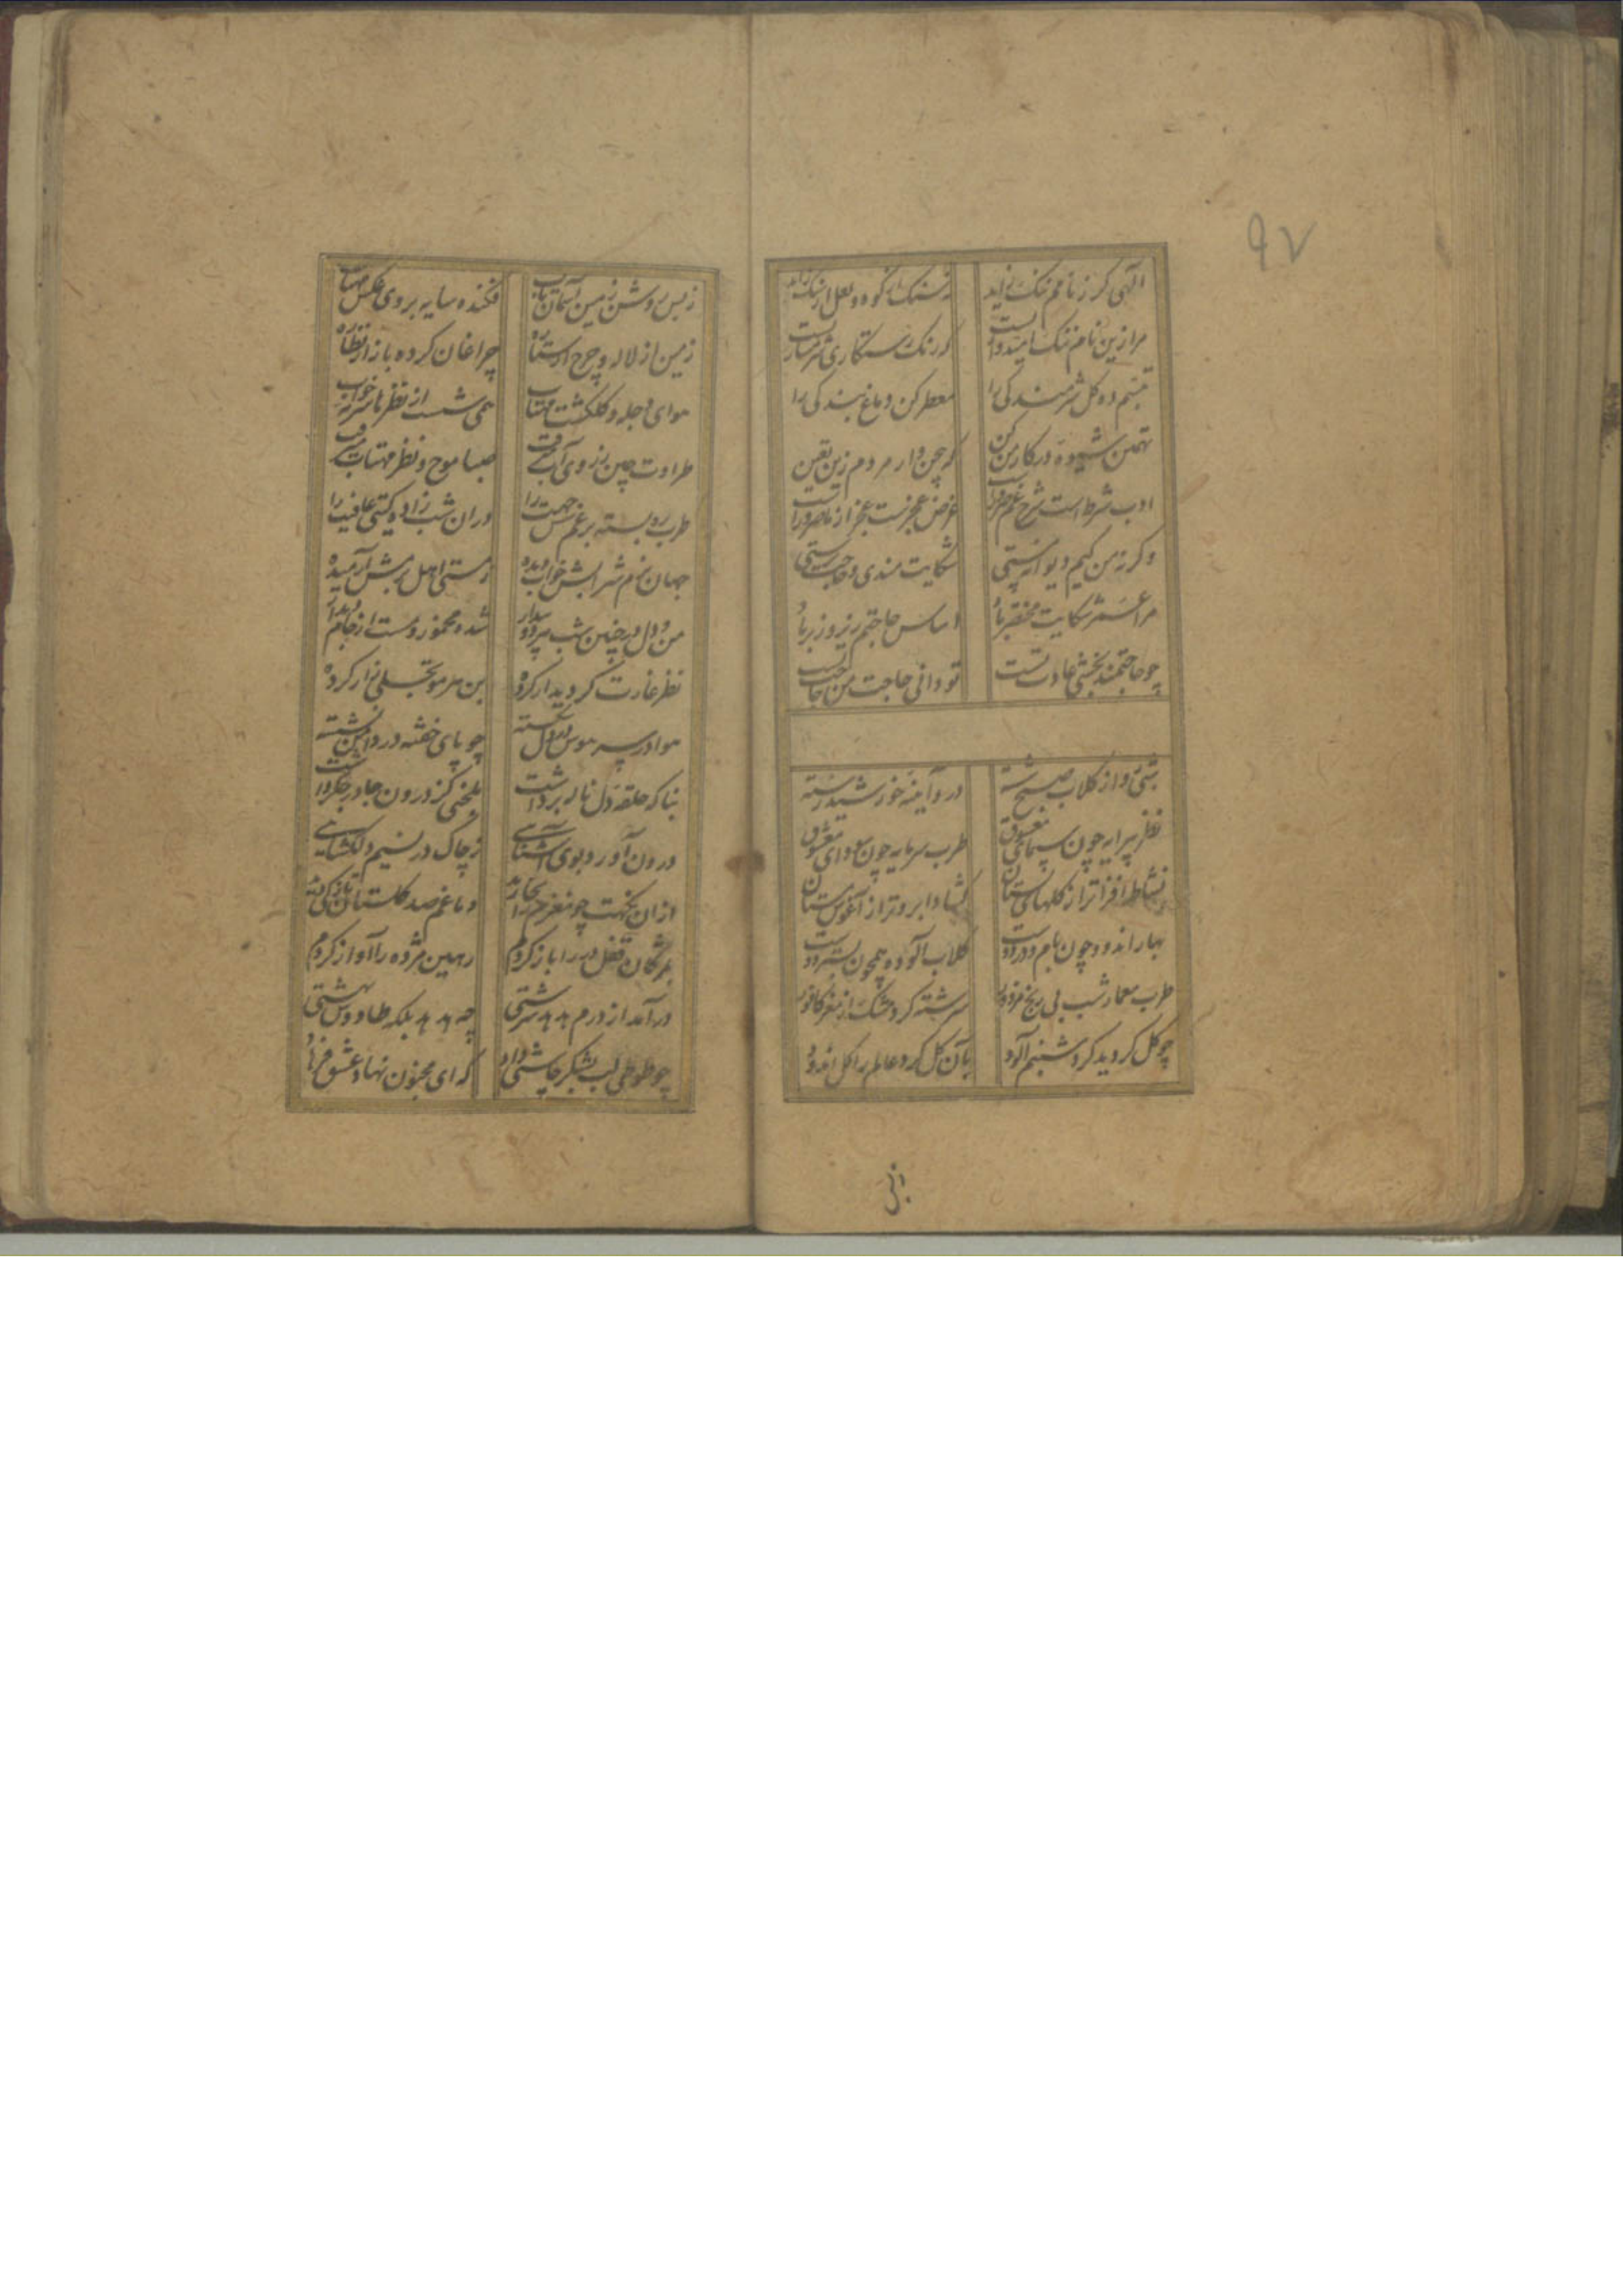 ۹۷
الهی کر ز نامم ننک زاید نه سنک از کوه و لعل از سنک زاید
مرا زین نام ننک امیدوار است که رنک رستکاری شرمسار است
تبسم ده کل شرمندکی را معطر کن دماغ بندکی را
همین شیوه در کار من کن که چون دار مردم زین یقین
ادب شرط است شرح غم ضرور است غرض عجز است عجز از ما ضرور است
وکرنه من کیم دیوانه مستی شکایت مندی و حاجت پرستی
مرا عمر شکایت مختصر باد اساس حاجتم زیر و زبر باد
چو حاجتمند بخشی عادت تست تو دانی حاجت من حاجت
شبی رو از کلاب صبح شسته در و آینه خورشید رسته
نظر پیرایه چون سیمای معشوق طرب سرمایه چون سودای معشوق
نشاط افزاتر از کلهای بستان کشاد ابروتر از آغوش مستان
بهار اندود چون بام و در دوست کلاب آلوده همچون بستر دوست
طرب معمار شب بی رنج مزدور سرشته کرد مشک از مغز کافور
چو کل کردید کرد شبنم آلود بآن کل کرد عالم را کل اندود
ز بس
ز بس روشن زمین آسمان تاب فکنده سایه بر روی عکس مهتاب
زمین از لاله و چرخ از ستاره چراغان کرده بازار نظاره
هوای دجله و کلکشت مهتاب همی شست از نظرها سرمه خواب
طراوت چین ز روی آب میرفت صبا موج و نظر مهتاب میرفت
طرب ره بسته بر غم شش جهت را در ان شب زاد کیتی عافیت را
جهان بزم شرابش خواب دیده ز مستی اهل بزمش آرمیده
من و دل در چنین شب هر دو بیدار شده مخمور و مست از جام دیدار
نظر غارت کر دیدار کرده بن هر مو تجلی زار کرده
هوا در سر هوس در دل شکسته چو پای خفته در دامن نشسته
بناکه حلقه دل ناله برداشت بلخی کز درون جا در جکر داشت
درون آورد بوی آشنایی ز چاک در نسیم دلکشایی
از ان نکهت چو مغزم در بخار شد دماغم صد کلستان تازه کی شد
بمژکان قفل در را باز کردم رهین مژده را آواز کردم
درآمد از درم هدهد سرشتی چه هدهد بلکه طاووس بهشتی
چو طوطی لب بشکر چاشنی داد که ای مجنون نهاد عشق فرهاد